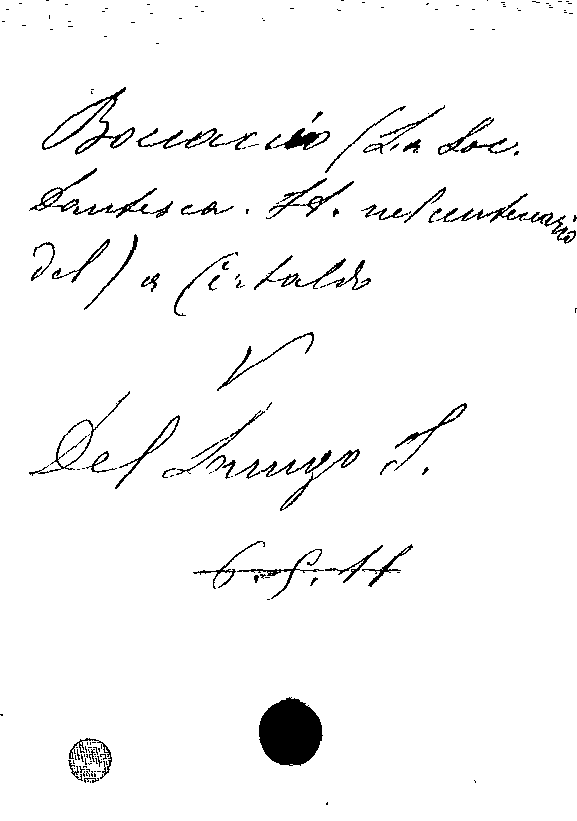 Boccaccio (La Soc.
Dantesca. It. nel centenario
del) a Certaldo
V
Del Lungo I.
6.5.11